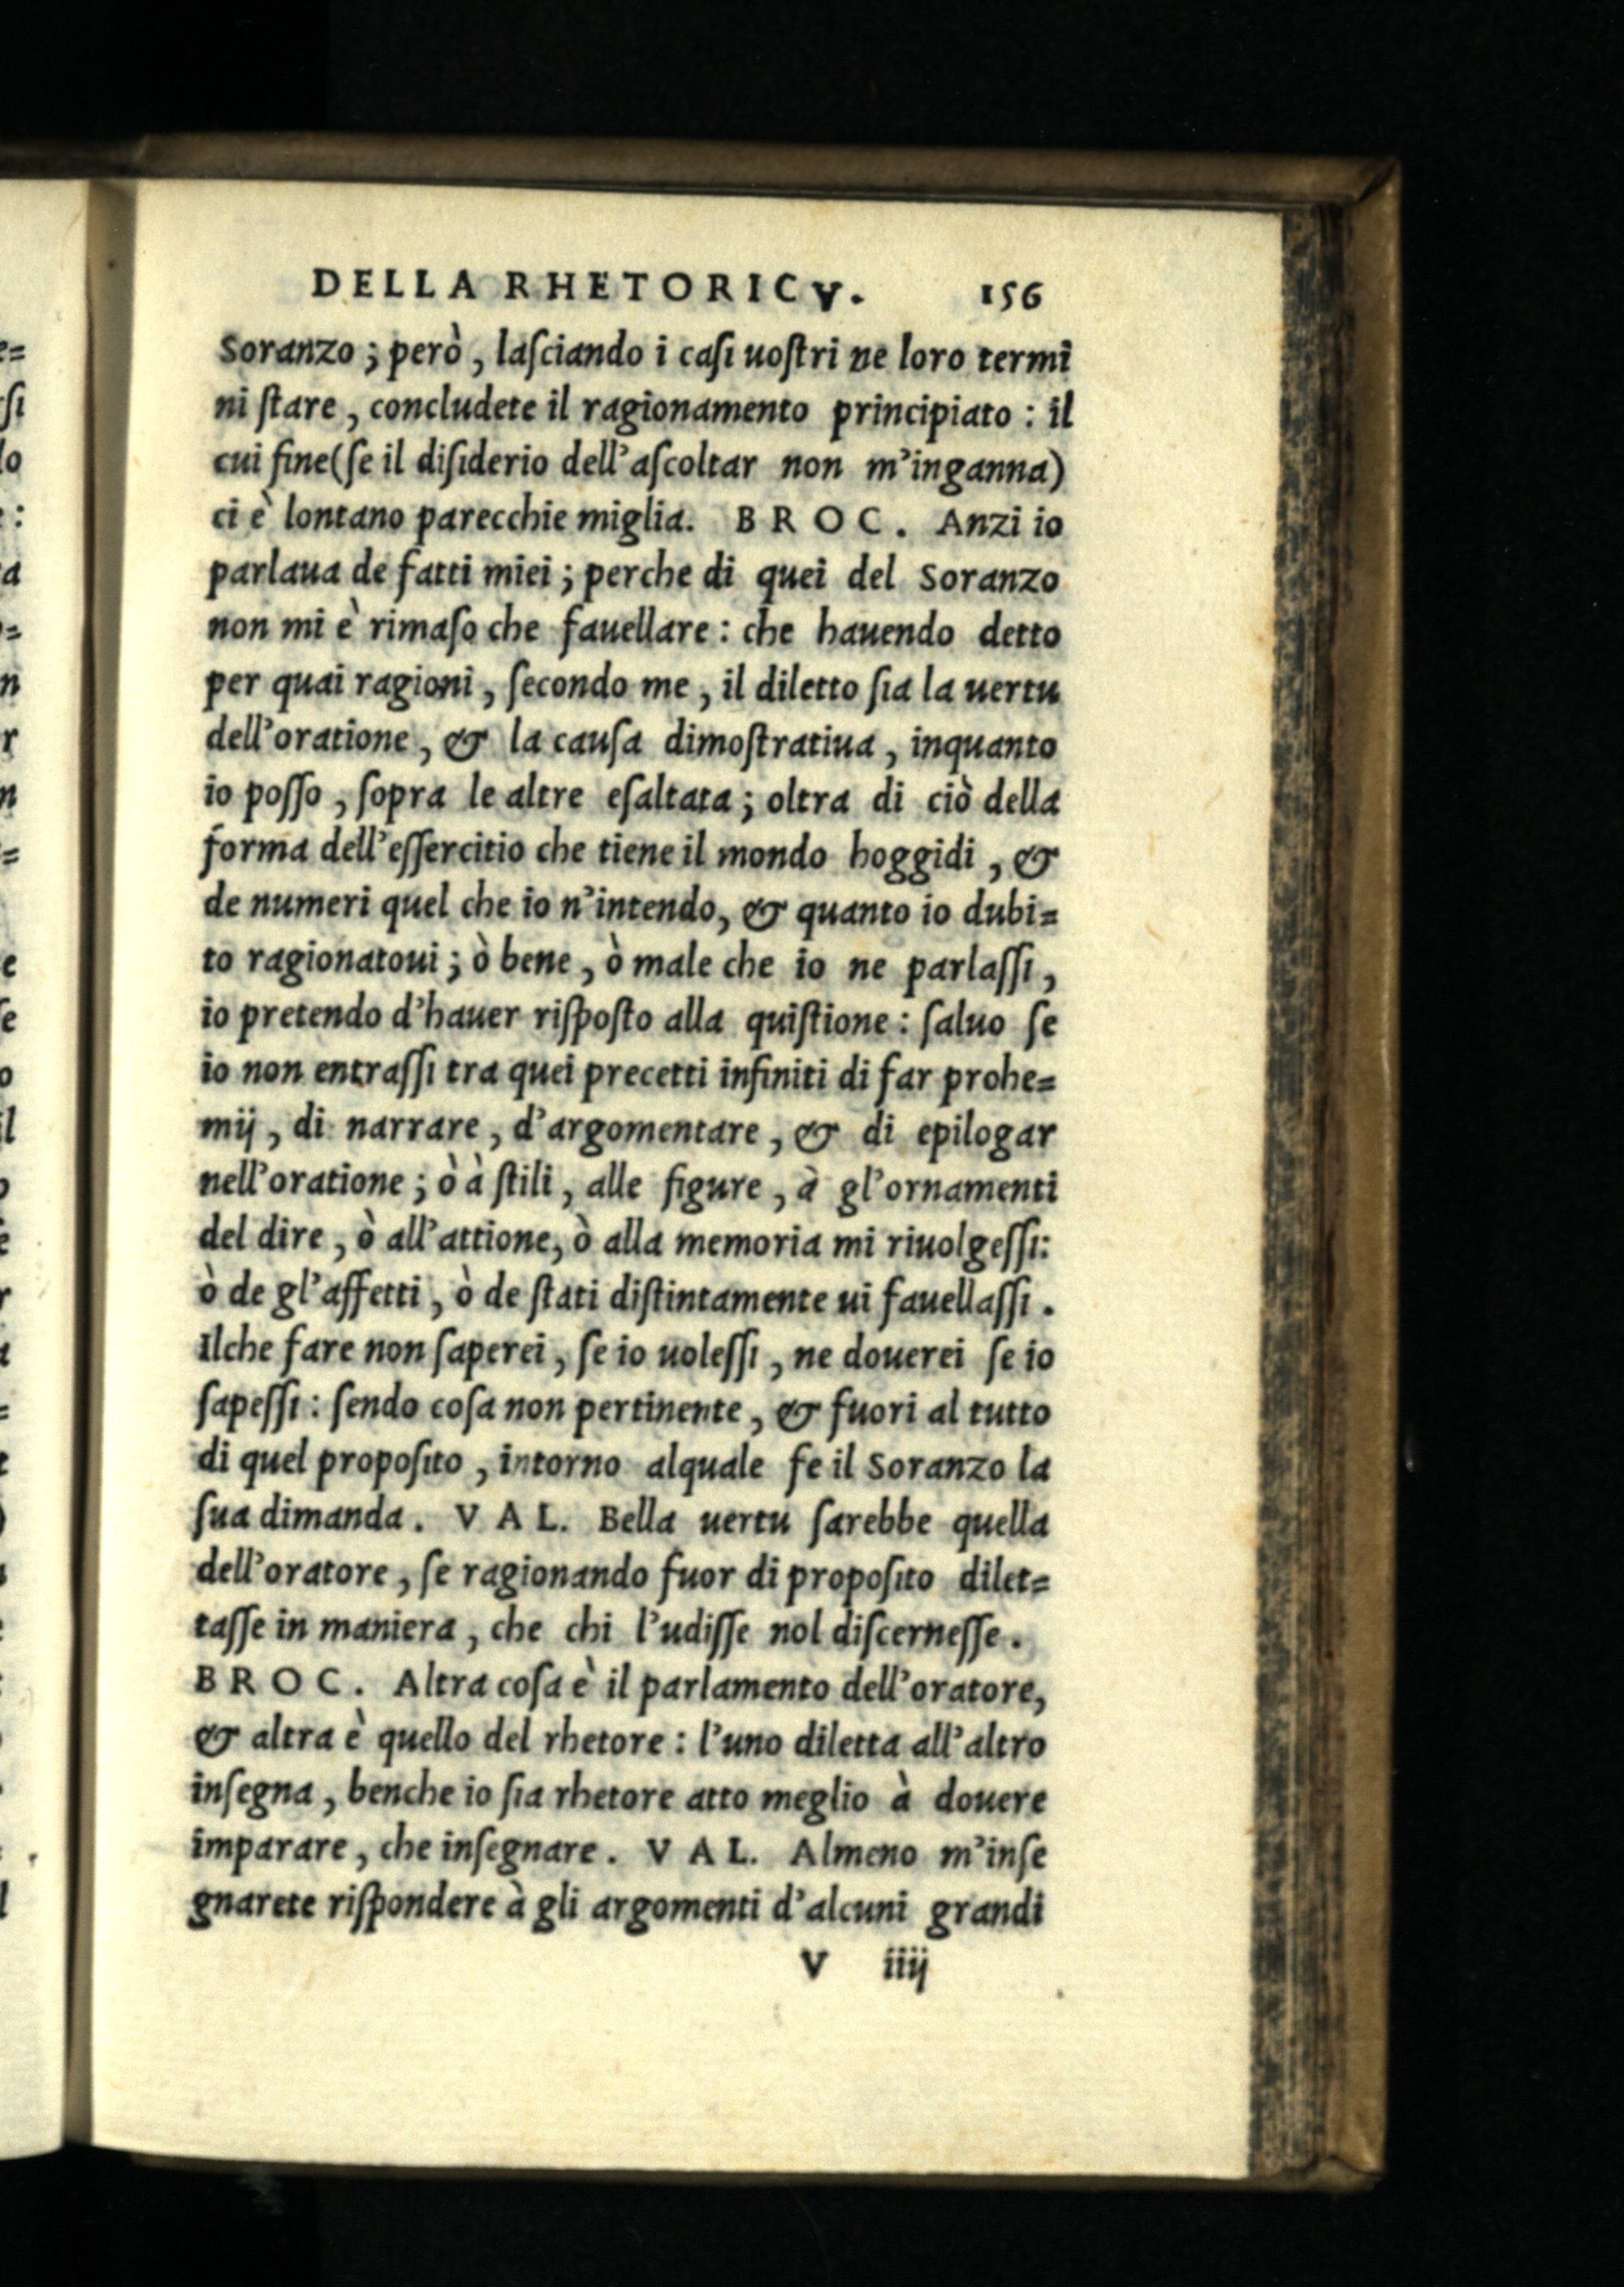 DELLA RHETORICV. 156
Soranzo; però, laſciando i caſi uoſtri ne loro termi
ni ſtare, concludete il ragionamento principiato: il
cui fine (ſe il diſiderio dell'aſcoltar non m'inganna)
ci è lontano parecchie miglia. BROC. Anzi io
parlaua de fatti miei; perche di quei del Soranzo
non mi è rimaſo che fauellare: che hauendo detto
per quai ragioni, ſecondo me, il diletto ſia la uertu
dell'oratione, & la cauſa dimoſtratiua, inquanto
io poſſo, ſopra le altre eſaltata; oltra di ciò della
forma dell'eſſercitio che tiene il mondo hoggidi, &
de numeri quel che io n'intendo, & quanto io dubi=
to ragionatoui; ò bene, ò male che io ne parlaſſi,
io pretendo d'hauer riſpoſto alla quiſtione: ſaluo ſe
io non entraſſi tra quei precetti infiniti di far prohe=
mij, di narrare, d'argomentare, & di epilogar
nell'oratione; ò à ſtili, alle figure, à gl'ornamenti
del dire, ò all'attione, ò alla memoria mi riuolgeſſi:
ò de gl'affetti, ò de ſtati diſtintamente ui fauellaſſi.
Ilche fare non ſaperei, ſe io uoleſſi, ne douerei ſe io
ſapeſſi: ſendo coſa non pertinente, & fuori al tutto
di quel propoſito, intorno alquale fe il Soranzo la
ſua dimanda. VAL. Bella uertu ſarebbe quella
dell'oratore, ſe ragionando fuor di propoſito dilet=
taſſe in maniera, che chi l'udiſſe nol diſcerneſſe.
BROC. Altra coſa è il parlamento dell'oratore,
& altra è quello del rhetore: l'uno diletta all'altro
inſegna, benche io ſia rhetore atto meglio à douere
imparare, che inſegnare. VAL. Almeno m'inſe
gnarete riſpondere à gli argomenti d'alcuni grandi
V iiij